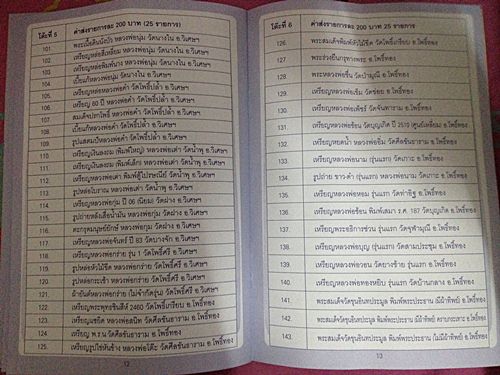 โต๊ะที่ 5 ค่าส่งรายการละ 200 บาท (25 รายการ)
101 พระเนื้อดินนั่งบัว หลวงพ่อนุ่ม วัดนางใน อ.วิเศษฯ
102 เหรียญหล่อสี่เหลี่ยม หลวงพ่อนุ่ม วัดนางใน อ.วิเศษฯ
103 เหรียญหล่อพิมพ์นาง หลวงพ่อนุ่ม วัดนางใน อ.วิเศษฯ
104 เบี้ยแก้หลวงพ่อนุ่ม วัดนางใน อ.วิเศษฯ
105 เหรียญหล่อหลวงพ่อคำ วัดโพธิ์ปล้ำ อ.วิเศษฯ
106 เหรียญ 60 ปี หลวงพ่อคำ วัดโพธิ์ปล้ำ อ.วิเศษฯ
107 สมเด็จปรกโพธิ์ หลวงพ่อคำ วัดโพธิ์ปล้ำ อ.วิเศษฯ
108 เบี้ยแก้หลวงพ่อคำ วัดโพธิ์ปล้ำ อ.วิเศษฯ
109 หลวงพ่อคำ วัดโพธิ์ปล้ำ อ.วิเศษฯ
110 เหรียญเงินลงยา (พิมพ์ใหญ่) หลวงพ่อเต่า วัดน้ำพุ อ.วิเศษฯ
111 เหรียญเงินลงยา (พิมพ์เล็ก) หลวงพ่อเต่า วัดน้ำพุ อ.วิเศษฯ
112 เหรียญหลวงพ่อเต่า วัดน้ำพุ อ.วิเศษฯ
113 รูปหล่อโบราณ หลวงพ่อเต่า วัดน้ำพุ อ.วิเศษฯ
114 เหรียญหลวงพ่อกุ่ม ปี 06 (นิยม) วัดฝาง อ.วิเศษฯ
115 หลวงพ่อกุ่ม วัดฝาง อ.วิเศษฯ
116 ตะกรุด หลวงพ่อกุ่ม วัดฝาง อ.วิเศษฯ
117 เหรียญหลวงพ่อจันทร์ ปี 83 วัดบางจัก อ.วิเศษฯ
118 เหรียญหลวงพ่อกร่าย รุ่น 1 วัดโพธิ์ศรี อ.วิเศษฯ
119 รูปหล่อหัวไม้ขีด หลวงพ่อกร่าย วัดโพธิ์ศรี อ.วิเศษฯ
120 รูปหล่อ หลวงพ่อกร่าย วัดโพธิ์ศรี อ.วิเศษฯ
121 ผ้ายันต์หลวงพ่อกร่าย (ไม่จำกัดรุ่น) วัดโพธิ์ศรี อ.วิเศษฯ
122 เหรียญพระพุทธชินสีห์ 2460 วัดโพธิ์เกรียบ อ.โพธิ์ทอง
123 เหรียญแซยิด หลวงพ่อสนิท วัดศีลขันธาราม อ.โพธิ์ทอง
124 เหรียญ พ.ร.น วัดศีลขันธาราม อ.โพธิ์ทอง
125 หลวงพ่อโต๊ะ วัดศีลขันธาราม อ.โพธิ์ทอง
12
โต๊ะที่ 6 ค่าส่งรายการละ 200 บาท (25 รายการ)
126 พระสมเด็จพิมพ์หัวไม้ขีด วัดโพธิ์เกรียบ อ.โพธิ์ทอง
127 อ.โพธิ์ทอง
128 พระหลวงพ่อชื่น วัดป่ามุนี อ.โพธิ์ทอง
129 เหรียญหลวงพ่อเข็ม วัดข่อย อ.โพธิ์ทอง
130 เหรียญหลวงพ่อเพ็ชร์ วัดจันทาราม อ.โพธิ์ทอง
131 เหรียญหลวงพ่อซ้อน วัดบุญเกิด ปี 2510 (ศูนย์เหลี่ยม) อ.โพธิ์ทอง
132 เหรียญหยดน้ำ หลวงพ่อพิม วัดศีลขันธาราม อ.โพธิ์ทอง
133 เหรียญหลวงพ่อนาม (รุ่นแรก) วัดเกาะ อ.โพธิ์ทอง
134 รูปถ่าย ขาวดำ (รุ่นแรก) หลวงพ่อนาม วัดเกาะ อ.โพธิ์ทอง
135 เหรียญหลวงพ่อหอม รุ่นแรก วัดท่าอิฐ อ.โพธิ์ทอง
136 เหรียญหลวงพ่อซ้อน พิมพ์เสมา ร.ศ. 187 วัดบุญเกิด อ.โพธิ์ทอง
137 เหรียญพระอธิการช่วน รุ่นแรก วัดจุฬามุณี อ.โพธิ์ทอง
138 เหรียญหลวงพ่อบุญ (รุ่นแรก) วัดลามประชุม อ.โพธิ์ทอง
139 เหรียญหลวงพ่อวอน วัดยางซ้าย รุ่นแรก อ.โพธิ์ทอง
140 เหรียญหลวงพ่อทองหยิบ รุ่นแรก วัดบ้านกลาง อ.โพธิ์ทอง
141 พระสมเด็จวัดขุนอินทประมูล พิมพ์พระประธาน (มีผ้าทิพย์) อ.โพธิ์ทอง
142 พระสมเด็จวัดขุนอินทประมูล พิมพ์พระประธาน (มีผ้าทิพย์) อ.โพธิ์ทอง
143 พระสมเด็จวัดขุนอินทประมูล พิมพ์พระประธาน (ไม่มีผ้าทิพย์) อ.โพธิ์ทอง
13